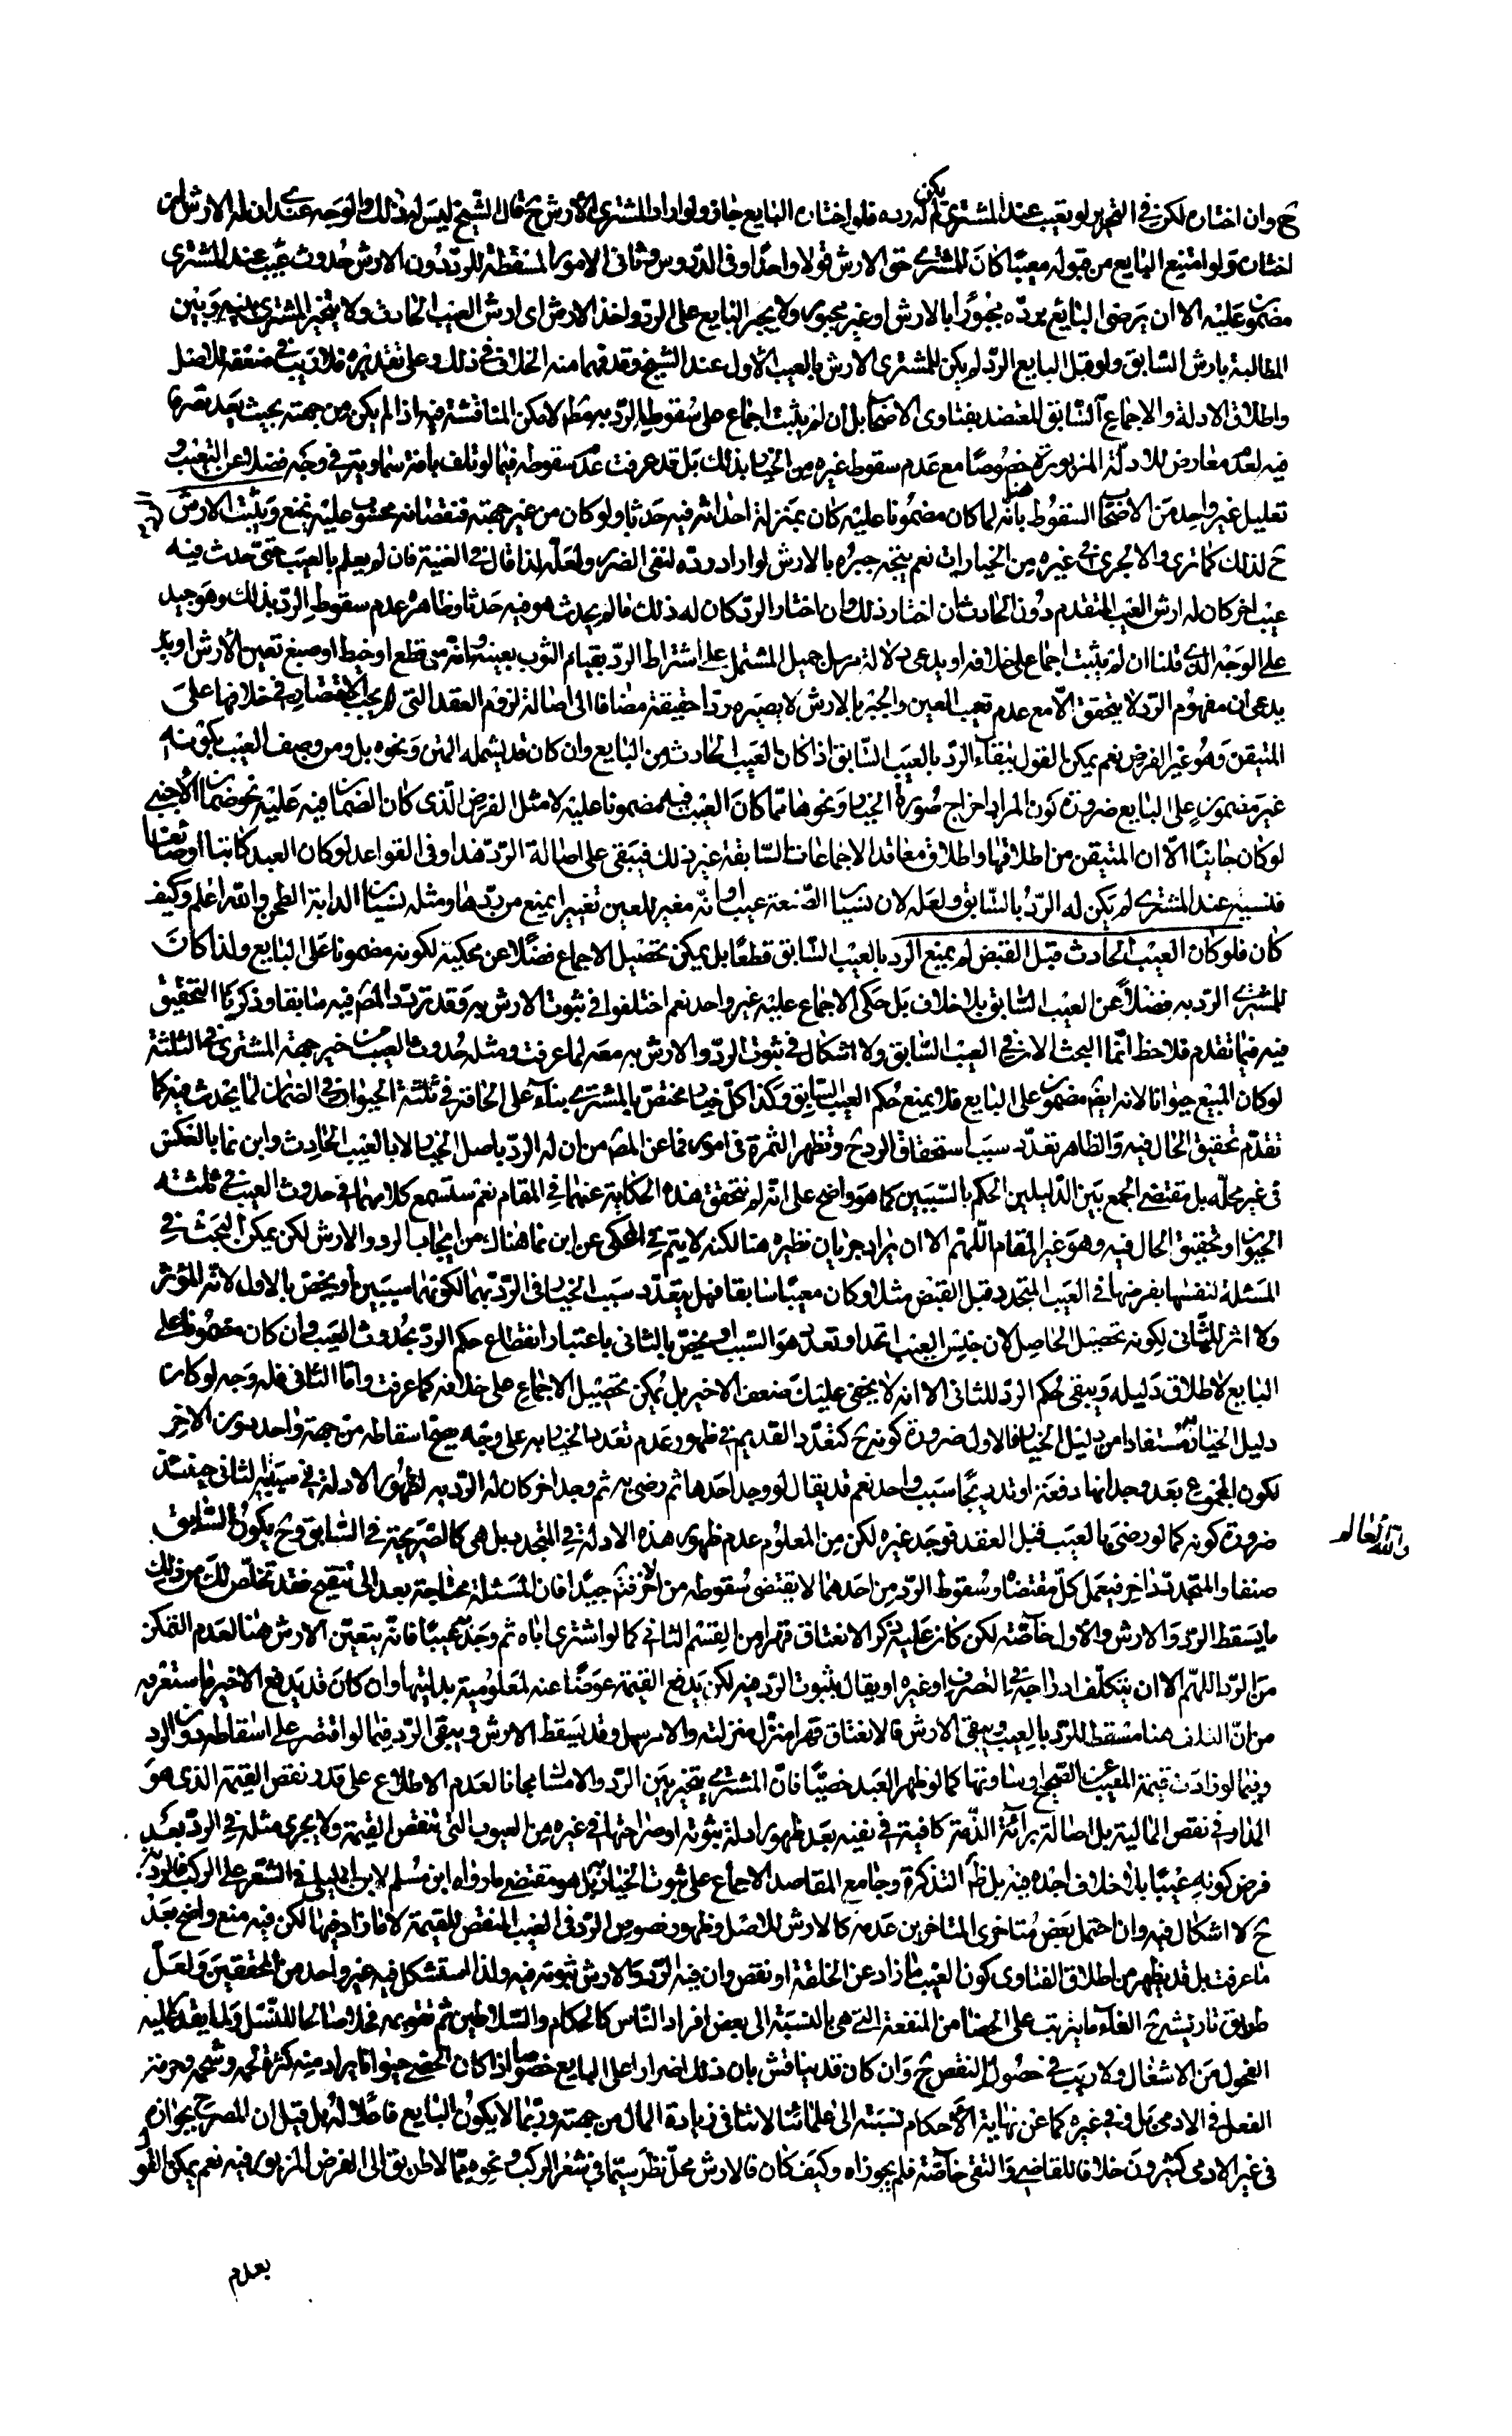 ح وان اختاره لكن في التحرير لو تعيب عند المشترى لم يكن له رده فلو اختاره البايع جاز ولو اراد المشترى الأرش ح قال الشيخ ليس له ذلك والوجه عندى ان له الارش ان
اختاره ولو امتنع البايع من قبوله معيبا كان للمشترى حق الارش قولا واحدا وفى الدروس وثانى الامور المسقطة للرد دون الارش حدوث عيب عند المشترى
مضمون عليه الا ان يرضى البايع برده مجبورا بالارش او غير مجبور ولا يجبر البايع على الرد واخذ الارش اى ارش العيب الحادث ولا يتخير المشترى بينه وبين
المطالبة بارش السابق ولو قبل البايع الرد لم يكن للمشترى الارش بالعيب الأول عند الشيخ وقد فهما منه الخلاف في ذلك وعلى تقديره فلا ريب في ضعفه للاصل
واطلاق الادلة والاجماع السابق المعتضد بفتاوى الاصحاب بل ان لم يثبت اجماع على سقوط الرد به مط لامكن المناقشة فيه اذا لم يكن من جهته بحيث يعد تصرفا
فيه لعدم معارض للادلة المزبورة خصوصا مع عدم سقوط غيره من الخيار بذلك بل قد عرفت عدم سقوطه فيما لو تلف بافة سماوية في وجه فضلا عن التعيب و
تعليل غير واحد من الاصحاب السقوط بانه لما كان مضمونا عليه كان بمنزلة احداثه فيه حدثا ولو كان من غير جهته فنقصانه محسوب عليه فيمنع ويثبت الارش
ح لذلك كما ترى والا لجرى في غيره من الخيارات نعم يتجه جبره بالارش لو اراد رده لنفى الضرر ولعله لذا قال في الغنية فان لم يعلم بالعيب حتى حدث فيه
عيب اخر كان له ارش العيب المتقدم دون الحادث ان اختار ذلك وان اختار الرد كان له ذلك ما لم يحدث هو فيه حدثا وظاهره عدم سقوط الرد بذلك وهو جيد
على الوجه الذى قلنا ان لم يثبت اجماع على خلافه او يدعى دلالة مرسل جميل المشتمل على اشتراط الرد بقيام الثوب بعينه وانه متى قطع او خيط او صبغ تعين الأرش او
يدعى ان مفهوم الرد لا يتحقق الا مع عدم تعيب العين والجبر بالارش لا يصيره ردا حقيقة مضافا الى اصالة لزوم العقد التى يجب الاقتصار في خلافها على
المتيقن وهو غير الفرض نعم يمكن القول ببقاء الرد بالعيب السابق اذا كان العيب الحادث من البايع وان كان قد يشمله المتن ونحوه بل ومن وصف العيب بكونه
غير مضمون على البايع ضرورة كون المراد اخراج صورة الخيار ونحوها مما كان العيب فيه مضمونا عليه لا مثل الفرض الذى كان الضمان فيه عليه نحو ضمان الأجنبى
لو كان جانيا الا ان المتيقن من اطلاقها واطلاق معاقد الاجماعات السابقة غير ذلك فيبقى على اصالة الرد هذا وفى القواعد لو كان العبد كاتبا او صانعا
فنسيه عند المشترى لم يكن له الرد بالسابق ولعله لان نسيان الصنعة عيب او انه مغير للعين تغييرا يمنع من ردها ومثله نسيان الدابة الطحن والله اعلم وكيف
كان فلو كان العيب الحادث قبل القبض لم يمنع الرد بالعيب السابق قطعا بل يمكن تحصيل الاجماع فضلا عن محكيه لكونه مضمونا على البايع ولذا كان
للمشترى الرد به فضلا عن العيب السابق بلا خلاف بل حكى الاجماع عليه غير واحد نعم اختلفوا في ثبوت الارش به وقد تردد المص فيه سابقا وذكرنا التحقيق
فيه فيما تقدم فلاحظ انما البحث الان في العيب السابق ولا اشكال في ثبوت الرد والارش به معه لما عرفت ومثله حدوث العيب من غير جهة المشترى في الثلثة
لو كان المبيع حيوانا لانه ايض مضمون على البايع فلا يمنع حكم العيب السابق وكذا كل خيار مختص بالمشترى بناء على الحاقه في ثلثة الحيوان في الضمان لما يحدث فيه كما
تقدم تحقيق الحال فيه والظاهر تعدد سبب استحقاق الرد ح وتظهر الثمرة فى امور فما عن المص من ان له الرد باصل الخيار لا بالعيب الحادث وابن نما بالعكس
فى غير محله بل مقتضى الجمع بين الدليلين الحكم بالسببين كما هو واضح على انه لم نتحقق هذه الحكاية عنهما في المقام نعم ستسمع كلامهما فى حدوث العيب في ثلثة
الحيوان وتحقيق الحال فيه وهو غير المقام اللهم الا ان يراد جريان نظيره هنا لكنه لا يتم في المحكى عن ابن نما هناك من ايجاب الرد والارش لكن يمكن البحث في
المسئلة لنفسها بفرضها فى العيب المتجدد قبل القبض مثلا لو كان معيبا سابقا فهل يتعدد سبب الخيار فى الرد بهما لكونهما سببين او يختص بالاول لانه المؤثر
ولا اثر للثانى لكونه تحصيل الحاصل لان جنس العيب اتحد او تعدد هو السبب او يختص بالثانى باعتبار انقطاع حكم الرد بحدوث العيب وان كان مضمونا على
البايع لاطلاق دليله ويبقى حكم الرد للثانى الا انه لا يخفى عليك ضعف الاخير بل يمكن تحصيل الاجماع على خلافه كما عرفت واما الثانى فله وجه لو كان
دليل الخيار مستفادا من دليل الخيار فالاول ضرورة كونه ح كتعدد القديم في ظهور عدم تعدد الخيار به على وجه يصح اسقاطه من جهة واحد دون الاخر
لكون المجموع بعد وجدانها دفعة او تدريجا سبب واحد نعم قد يقال لو وجد احدها ثم رضى به ثم وجد اخر كان له الرد به لظهور الادلة في سببية الثانى حينئذ
ضرورة كونه كما لو رضى بالعيب قبل العقد فوجد غيره لكن من المعلوم عدم ظهور هذه الادلة في المتجدد بل هى كالصريحة في السابق وح يكون السابق
صنفا والمتجدد اخر فيعمل كل مقتضاه وسقوط الرد من احدهما لا يقتضى سقوطه من الاخر فتم جيدا فان المسئلة محتاجة بعد الى تنقيح فقد تخلص لك من ذلك
ما يسقط الرد والارش والأول خاصة لكن كان عليه ذكر الانعتاق قهرا من القسم الثانى كما لو اشترى اباه ثم وجده معيبا فانه يتعين الارش هنا لعدم التمكن
من الرد اللهم الا ان يتكلف ادراجه في التصرف او غيره او يقال بثبوت الرد فيه لكن يدفع القيمة عوضا عنه لمعلومية بدليتها وان كان قد يدفع الاخير ما ستعرفه
من ان التلف هنا مسقط للرد بالعيب ويبقى الارش فالانعتاق قهرا منزل منزلته والامر سهل وقد يسقط الارش ويبقى الرد فيما لو اقتصر على اسقاطه دون الرد
وفيما لو زادت قيمة المعيب عن الصحيح او ساوتها كما لو ظهر العبد خصيا فان المشترى يتخير بين الرد والامساك مجانا لعدم الاطلاع على قدر نقص القيمة الذى هو
المدار في نقص المالية بل اصالة برائة الذمة كافية في نفيه بعد ظهور ادلة ثبوته او صراحتها في غيره من العيوب التى تنقص القيمة ولا يجرى مثله في الرد بعد
فرض كونه عيبا بلا خلاف اجده فيه بل ظ التذكرة وجامع المقاصد الاجماع على ثبوت الخيار به بل هو مقتضى ما رواه ابن مسلم لابن ابى ليلى في الشعر على الركب فالرد به
ح لا اشكال فيه وان احتمل بعض متاخرى المتاخرين عدمه كالارش للاصل وظهور نصوص الرد فى العيب المنقص للقيمة لا ما زاد فيها لكن فيه منع واضح بعد
ما عرفت بل قد يظهر من اطلاق الفتاوى كون العيب ما زاد عن الخلقة او نقص وان فيه الرد والارش ثبوته فيه ولذا استشكل فيه غير واحد من المحققين ولعل
طريق تاديته ح الغاء ما يترتب على الخصاء من المنفعة التى هى بالنسبة الى بعض افراد الناس كالحكام والسلاطين ثم تقويمه فحلا صالحا للنسل ولما يقدر عليه
الفحول من الاشغال ولا ريب في حصول النقص ح وان كان قد يناقش بان ذلك اضرار على البايع خصوصا اذا كان الخصى حيوانا يراد منه كثرة لحمه وشحمه وحرمة
الفعل فى الادمى بل وفى غيره كما عن نهاية الاحكام نسبته الى علمائنا لا تنافى زيادة المال من جهته وربما لا يكون البايع فاعلا له بل قيل ان المصرح بجوازه
فى غير الادمى كثيرون خلافا للقاضى والتقى خاصة فلم يجوزاه وكيف كان فالارش محل نظر سيما فى شعر الركب ونحوه مما لا طريق الى الفرض المزبور فيه نعم يمكن القو
والله العالم
بعدم